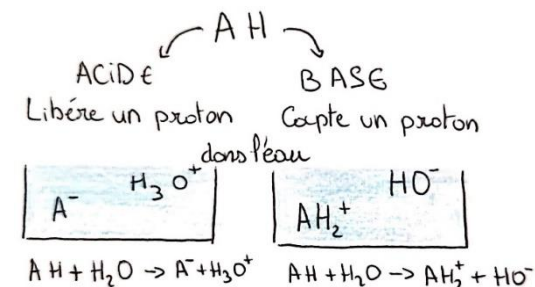 AH
ACiDE BASE
Libère un proton Capte un proton
dans l'eau
A⁻ H₃O⁺ AH₂⁺ HO⁻
AH + H₂O → A⁻ + H₃O⁺ AH + H₂O → AH₂⁺ + HO⁻